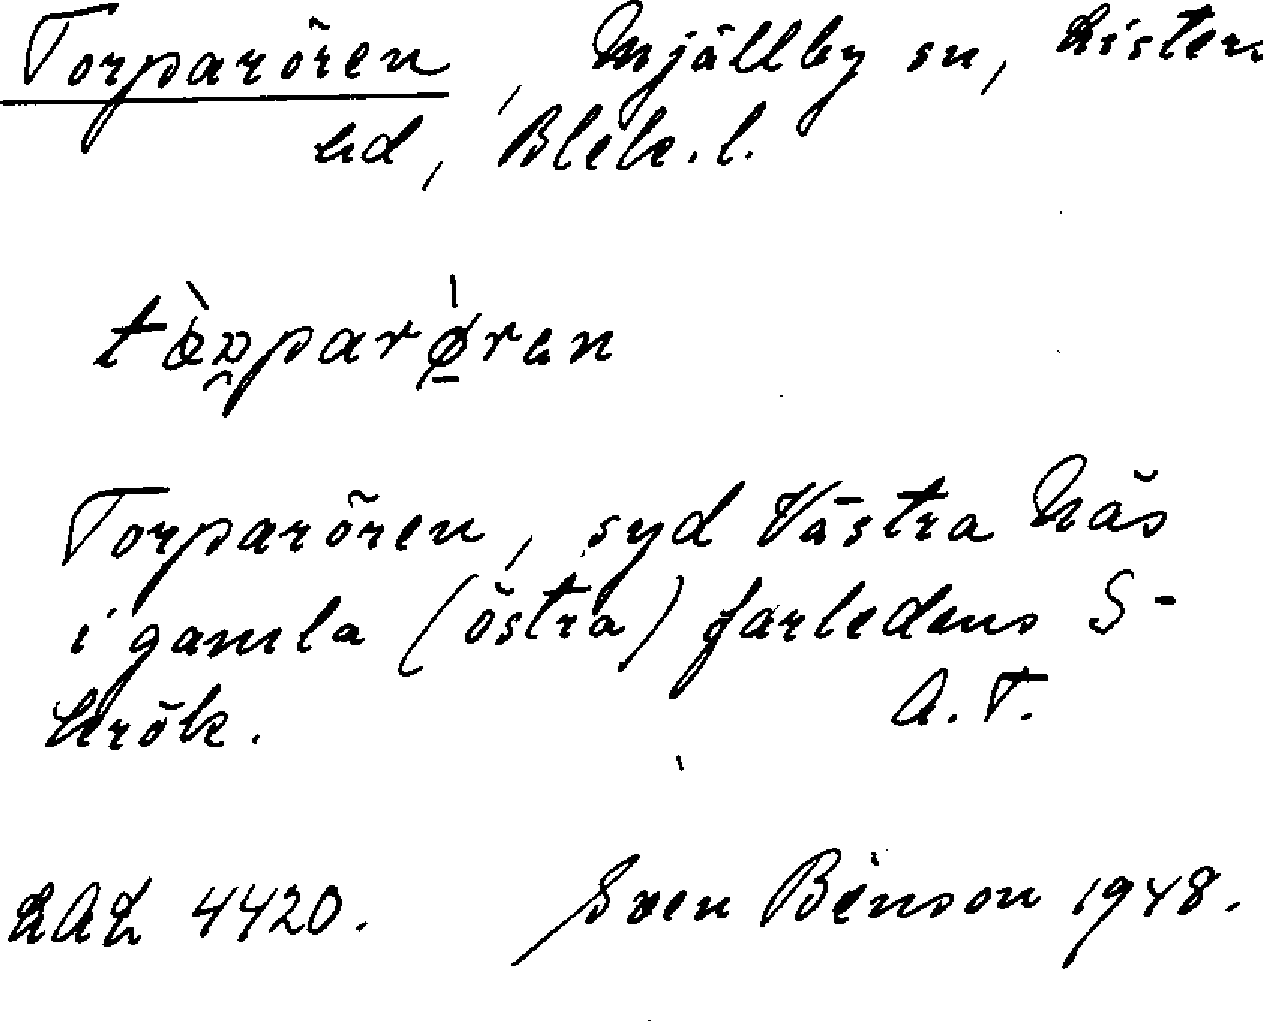 Torparören, Mjällby sn, Listers
hd, Blek. l.
Torparören, syd Västra Näs
i gamla (östra) farledens S-
krök. A. T.
LAL 4420. Sven Benson 1948.